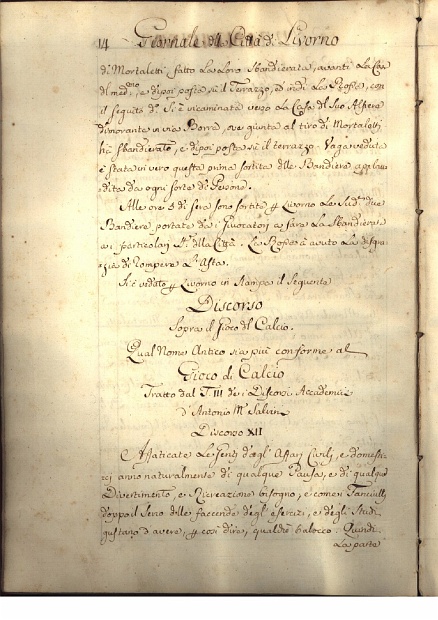 14 Giornale d Città di Livorno
di Mortaletti fatto la loro Sbandierata, avanti la Casa
di posta sù il Terrazzo, ed indi la Rossa, con
il seguito di Sè incaminata verso la Casa del Suo Alfiere
dimorante in via Borra, ove giunta al tiro di Mortaletti
hà sbandierato, e dipoi posta sù il terrazzo. Vaga veduta
è stata in vero questa prima sortita delle Bandiere applau
dita da ogni sorte di Persone.
Alle ore 5 di sera sono sortite Livorno le due
Bandiere portate da i Giuocatori a fare la Sbandierata
a i particolari della Città. La Rossa à avuto la disgra
zia di rompere l'Asta.
Si è veduto Livorno in Stampa il seguente
Discorso
Sopra il Gioco del Calcio.
Qual Nome Antico sia più conforme al
Gioco di Calcio
Tratto dal T. III de i Discorsi Accademici
d'Antonio M. Salvini
Discorso XII
Affaticate le Genti dagl' Affari Civili, e domesti
ci anno naturalmente di qualque Pausa, e di qualque
Divertimento, e Ricreazione bisogno, e come i Fanciulli
doppo il serio delle faccende degl' esercizi, e degli Studi
gustano d'avere, così dire, qualche balocco: Quindi
La parte